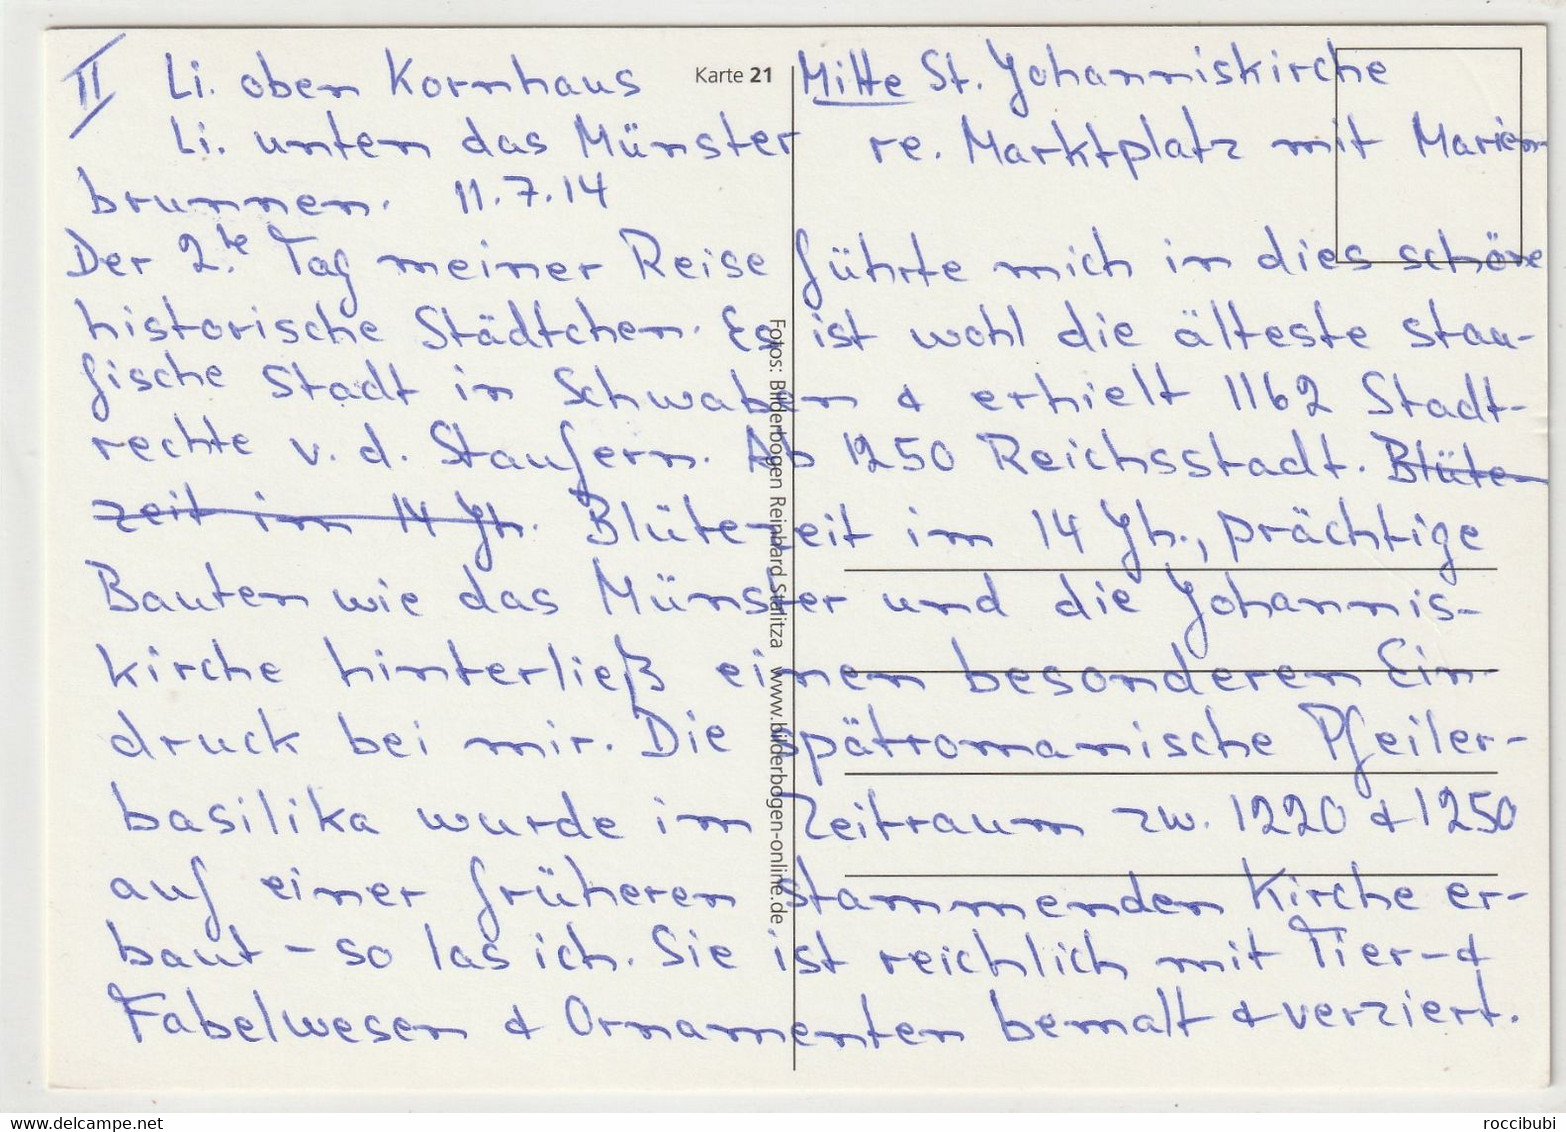 II Li. oben Kornhaus Karte 21 Mitte St. Johanniskirche
Li. unten das Münster re. Marktplatz mit Marien-
brunnen. 11.7.14
Der 2.te Tag meiner Reise führte mich in dies schöne
historische Städtchen. Es ist wohl die älteste stau-
fische Stadt in Schwaben & erhielt 1162 Stadt-
rechte v. d. Staufern. Ab 1250 Reichsstadt. Blüte-
zeit im 14 Jh. Blütezeit im 14 Jh., prächtige
Bauten wie das Münster und die Johannis-
kirche hinterließ einen besonderen Ein-
druck bei mir. Die spätromanische Pfeiler-
basilika wurde im Zeitraum zw. 1220 & 1250
auf einer früheren stammenden Kirche er-
baut - so las ich. Sie ist reichlich mit Tier- &
Fabelwesen & Ornamenten bemalt & verziert.
Fotos: Bilderbogen Reinhard Stalitza www.bilderbogen-online.de
www.delcampe.net
roccibubi